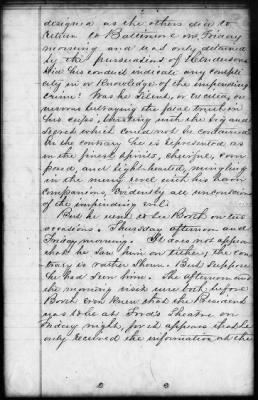 designed as the others did to
return to Baltimore on Friday
morning and was only detained
by the persuasions of Henderson.
Did his conduct indicate any compli-
city in or Knowledge of the impending
crime? Was he silent, or
nervous betraying the fatal
his cups, bursting with the big and
secret which could not be contained
On the contrary he is represented as
in the finest spirits, cheerful, com
posed, and light-hearted, mingling
in the merry with his
companions, evidently all unconscious
of the impending evil.
But he went to see Booth on two
occasions. Thursday afternoon and
Friday morning. It does not appear
that he saw him on either; the con
trary is rather shown. But suppose
he had seen him. The afternoon and
the morning visit were both before
Booth even knew that the President
was to be at Ford's Theatre on
Friday night, for it appears that he
only received the information at the